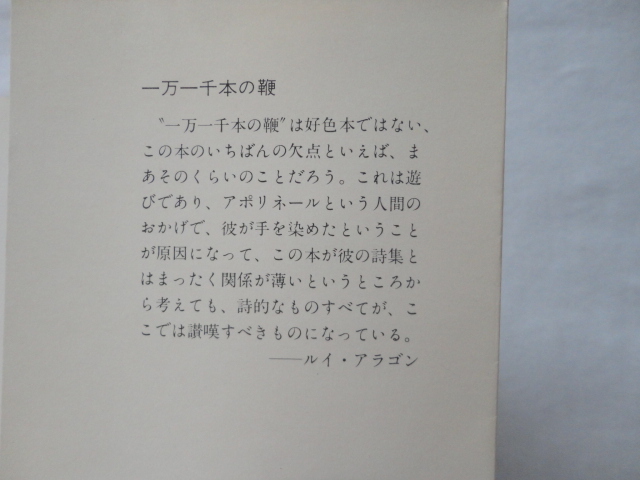 一万一千本の鞭
〝一万一千本の鞭〟は好色本ではない、
この本のいちばんの欠点といえば、ま
あそのくらいのことだろう。これは遊
びであり、アポリネールという人間の
おかげで、彼が手を染めたということ
が原因になって、この本が彼の詩集と
はまったく関係が薄いというところか
ら考えても、詩的なものすべてが、こ
こでは讃嘆すべきものになっている。
──ルイ・アラゴン